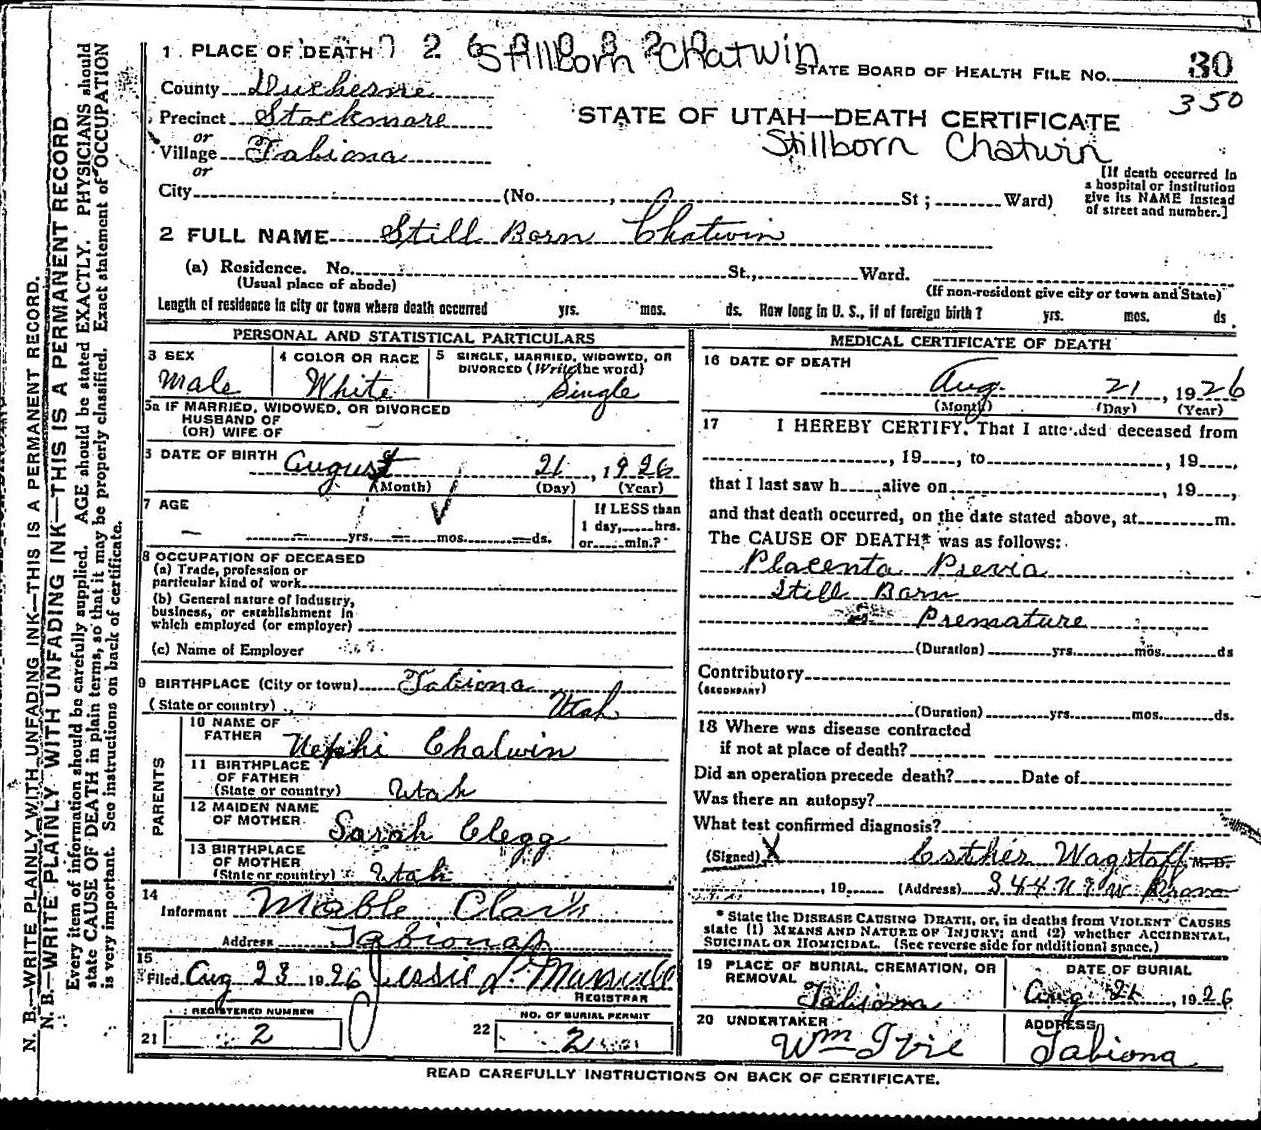 1 PLACE OF DEATH 7 2 6 Stillborn Chatwin
STATE BOARD OF HEALTH FILE No. 30
350
County Duchesne
Precinct Stockmore
or
Village Tabiona
or
STATE OF UTAH—DEATH CERTIFICATE
Stillborn Chatwin
[If death occurred in a hospital or institution give its NAME instead of street and number.]
City (No. , St ; Ward)
2 FULL NAME Still Born Chatwin
(a) Residence. No. St., Ward.
(Usual place of abode) (If non-resident give city or town and State)
Length of residence in city or town where death occurred yrs. mos. ds. How long in U. S., if of foreign birth? yrs. mos. ds.
PERSONAL AND STATISTICAL PARTICULARS
3 SEX Male
4 COLOR OR RACE White
5 SINGLE, MARRIED, WIDOWED, OR DIVORCED (Write the word) Single
5a IF MARRIED, WIDOWED, OR DIVORCED
HUSBAND OF
(OR) WIFE OF
6 DATE OF BIRTH August 21, 1926
(Month) (Day) (Year)
7 AGE — — yrs. — mos. — ds.
If LESS than
1 day, hrs.
or min.?
8 OCCUPATION OF DECEASED
(a) Trade, profession or
particular kind of work
(b) General nature of industry,
business, or establishment in
which employed (or employer)
(c) Name of Employer
9 BIRTHPLACE (City or town) Tabiona
(State or country) Utah
PARENTS
10 NAME OF FATHER Nephi Chatwin
11 BIRTHPLACE OF FATHER (State or country) Utah
12 MAIDEN NAME OF MOTHER Sarah Clegg
13 BIRTHPLACE OF MOTHER (State or country) Utah
14
Informant Mable Clark
Address Tabiona
15
Filed Aug 23 1926 Jessie L.
REGISTRAR
REGISTERED NUMBER
21 2
NO. OF BURIAL PERMIT
22 2
MEDICAL CERTIFICATE OF DEATH
16 DATE OF DEATH
Aug. 21, 1926
(Month) (Day) (Year)
17 I HEREBY CERTIFY, That I attended deceased from
, 19 , to , 19 ,
that I last saw h alive on , 19 ,
and that death occurred, on the date stated above, at m.
The CAUSE OF DEATH* was as follows:
Placenta Previa
Still Born
Premature
(Duration) yrs. mos. ds
Contributory
(SECONDARY)
(Duration) yrs. mos. ds.
18 Where was disease contracted
if not at place of death?
Did an operation precede death? Date of
Was there an autopsy?
What test confirmed diagnosis?
(Signed) X Esther Wagstaff M. D.
, 19 (Address) 344 N
* State the DISEASE CAUSING DEATH, or, in deaths from VIOLENT CAUSES
state (1) MEANS AND NATURE OF INJURY; and (2) whether ACCIDENTAL,
SUICIDAL OR HOMICIDAL. (See reverse side for additional space.)
19 PLACE OF BURIAL, CREMATION, OR REMOVAL Tabiona
DATE OF BURIAL Aug 21, 1926
20 UNDERTAKER Wm Ivie
ADDRESS Tabiona
READ CAREFULLY INSTRUCTIONS ON BACK OF CERTIFICATE.
N. B.—WRITE PLAINLY WITH UNFADING INK—THIS IS A PERMANENT RECORD.
N. B.—WRITE PLAINLY WITH UNFADING INK—THIS IS A PERMANENT RECORD
Every item of information should be carefully supplied. AGE should be stated EXACTLY. PHYSICIANS should
state CAUSE OF DEATH in plain terms, so that it may be properly classified. Exact statement of OCCUPATION
is very important. See instructions on back of certificate.